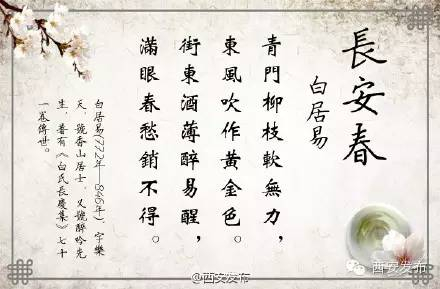 長安春
白居易
青門柳枝軟無力，
東風吹作黃金色。
街東酒薄醉易醒，
滿眼春愁銷不得。
白居易(772年—846年)，字樂
天，號香山居士，又號醉吟先
生，著有《白氏長慶集》七十
一卷傳世。
@西安发布
西安发布